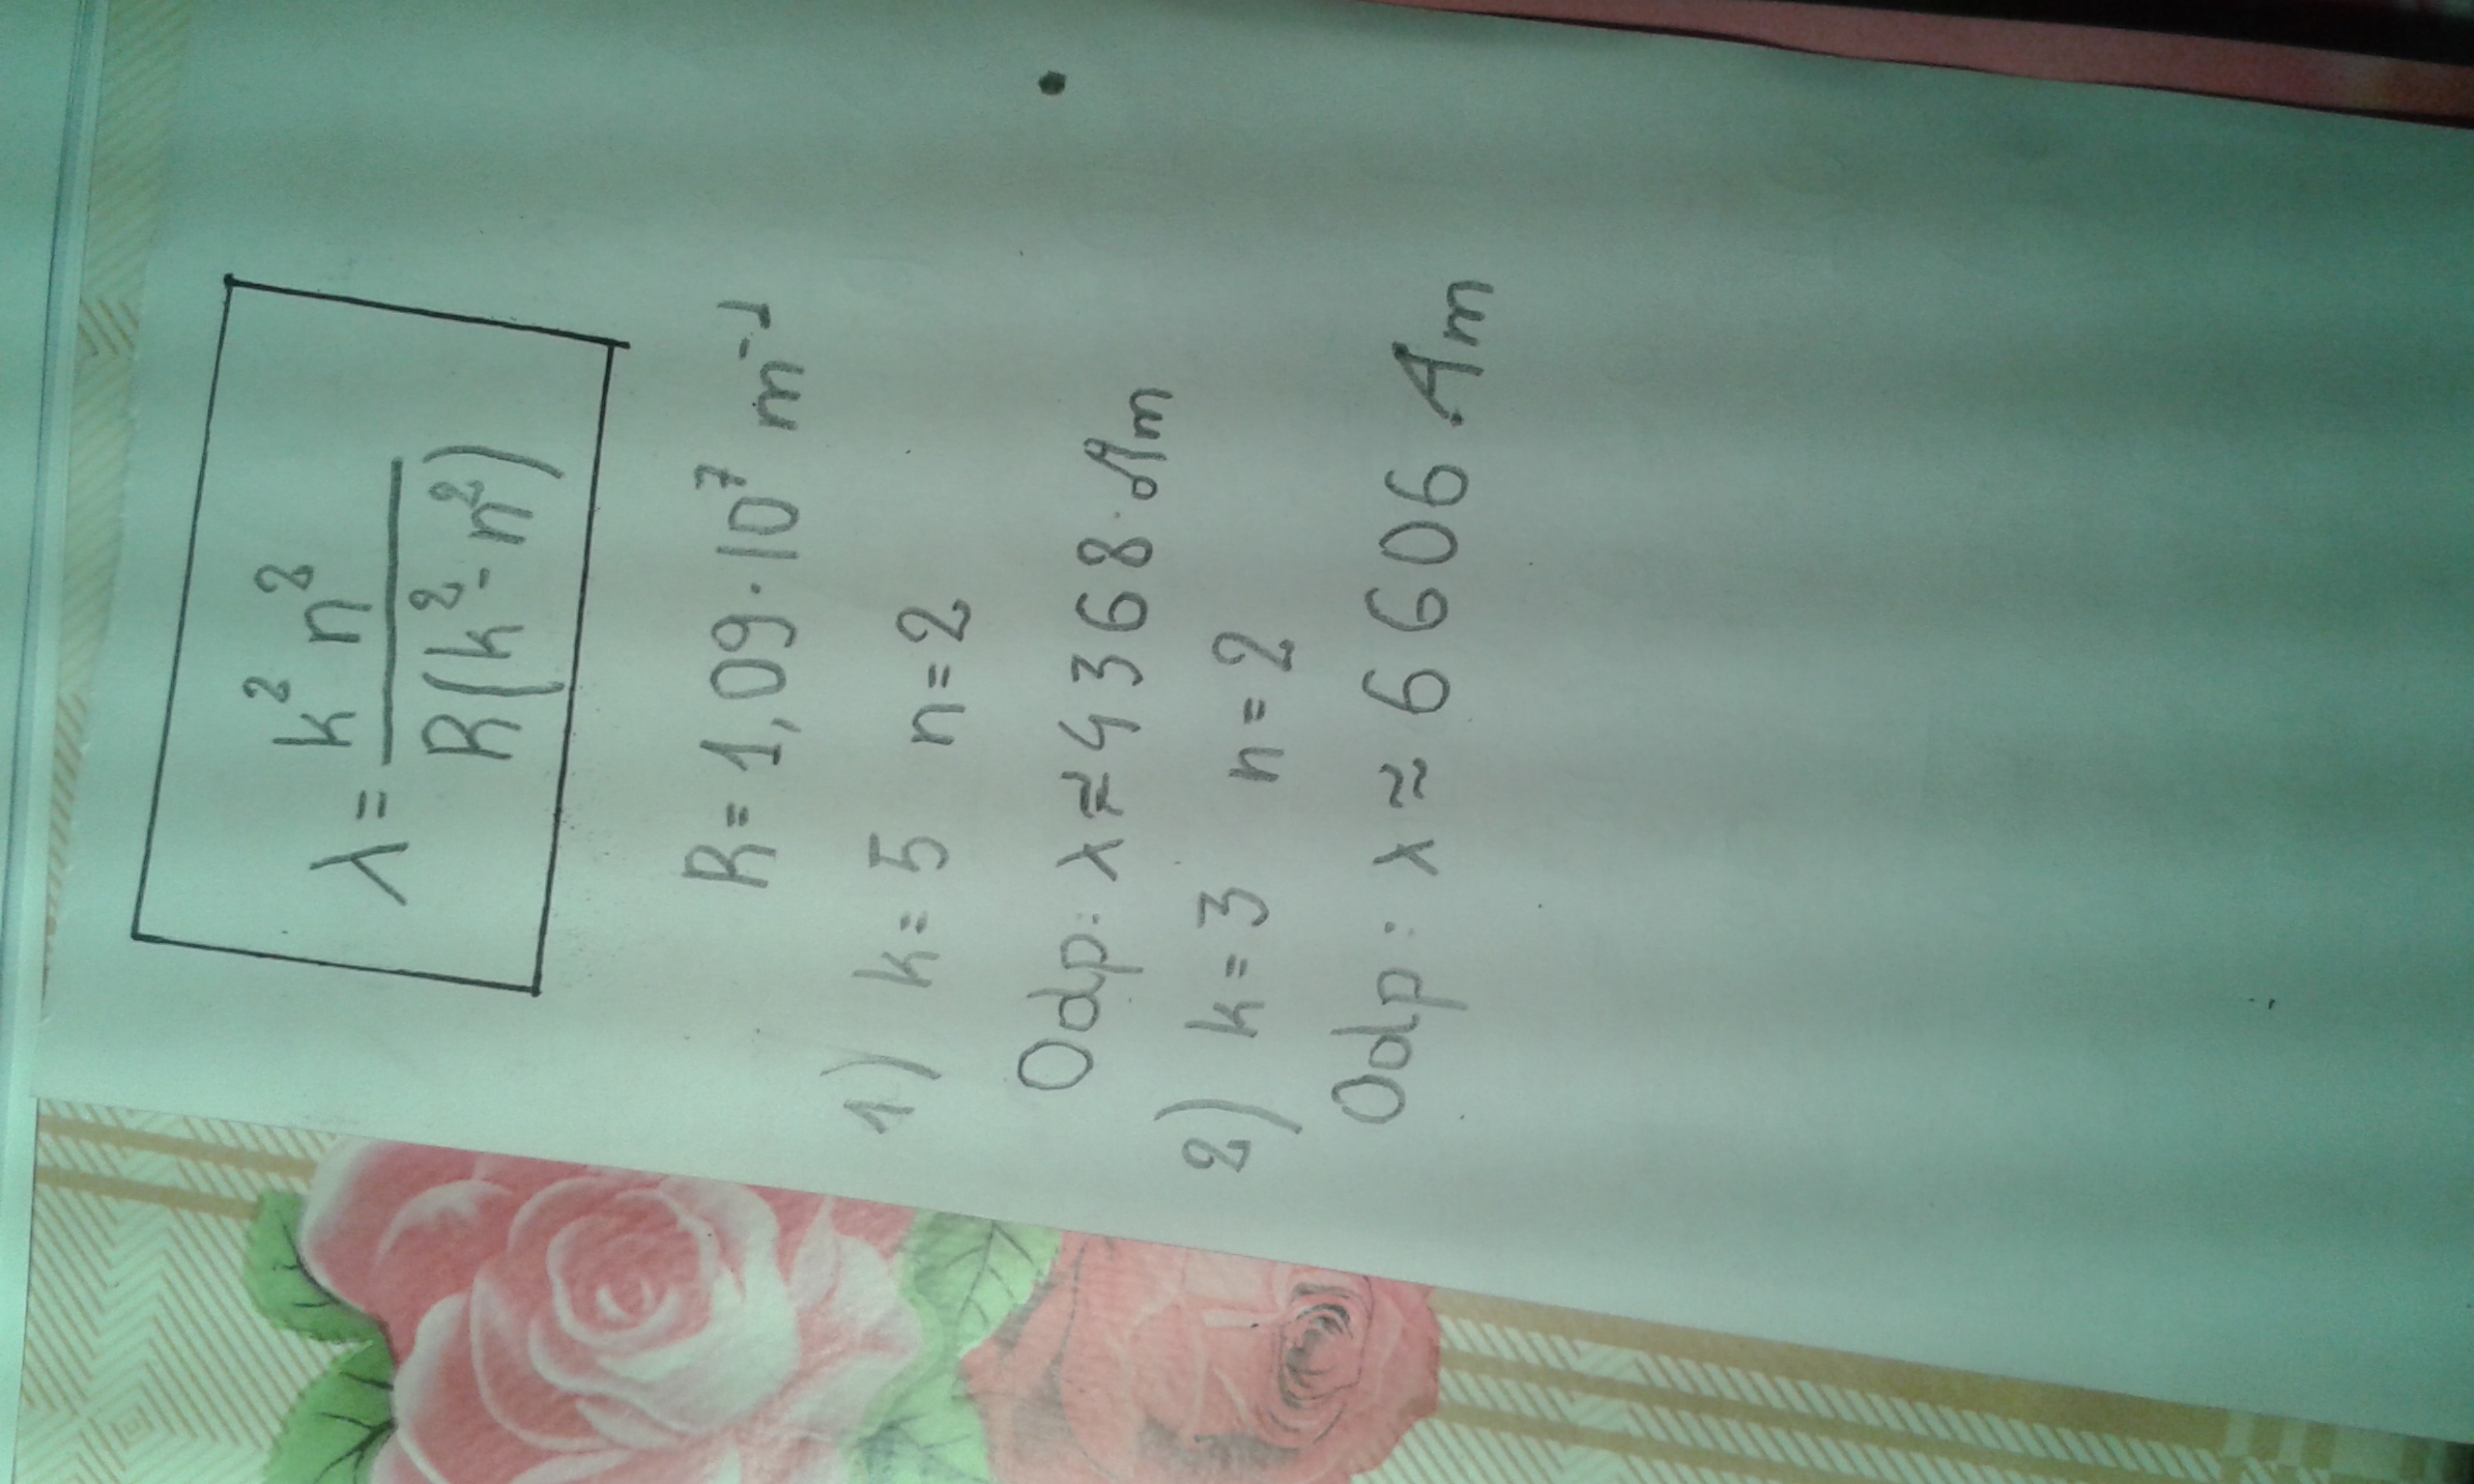 λ = k² n² / R(k² - n²)
R = 1,09 · 10⁷ m⁻¹
1) k = 5 n = 2
Odp: λ ≈ 4368 Am
2) k = 3 n = 2
Odp: λ ≈ 6606 Am